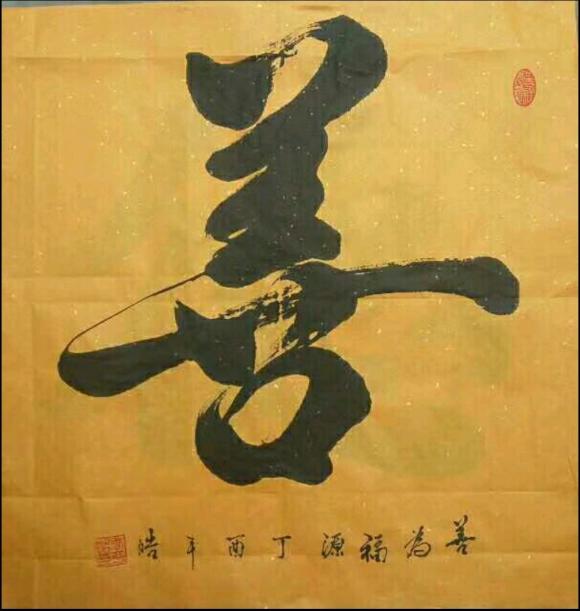 善
善為福源丁酉年皓